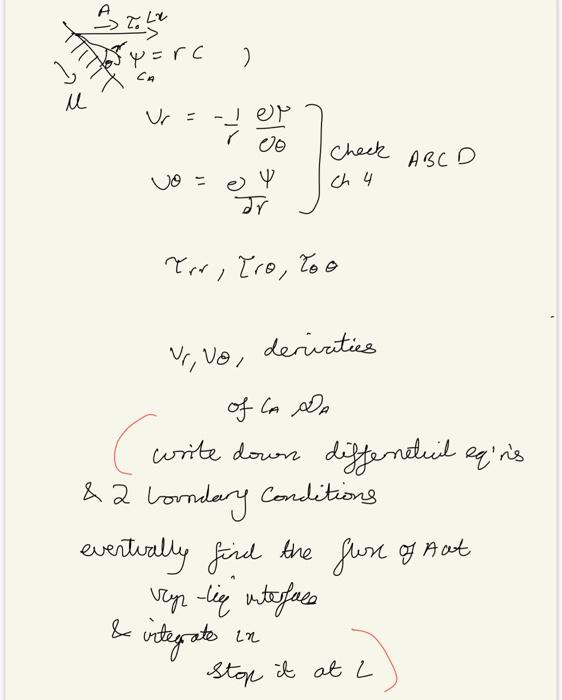 A
→ τ₀ Lx
ψ = r ( )
C_A
U
v_r = -1/r ∂ψ/∂θ
v_θ = ∂ψ/∂r
Check ABCD
Ch 4
τ_rr, τ_rθ, τ_θθ
v_r, v_θ, derivaties
of C_A D_A
write down differnetial eq'ns
& 2 boundary conditions
eventually find the flux of A at
vap-liq interface
& integrate Lx
stop it at L